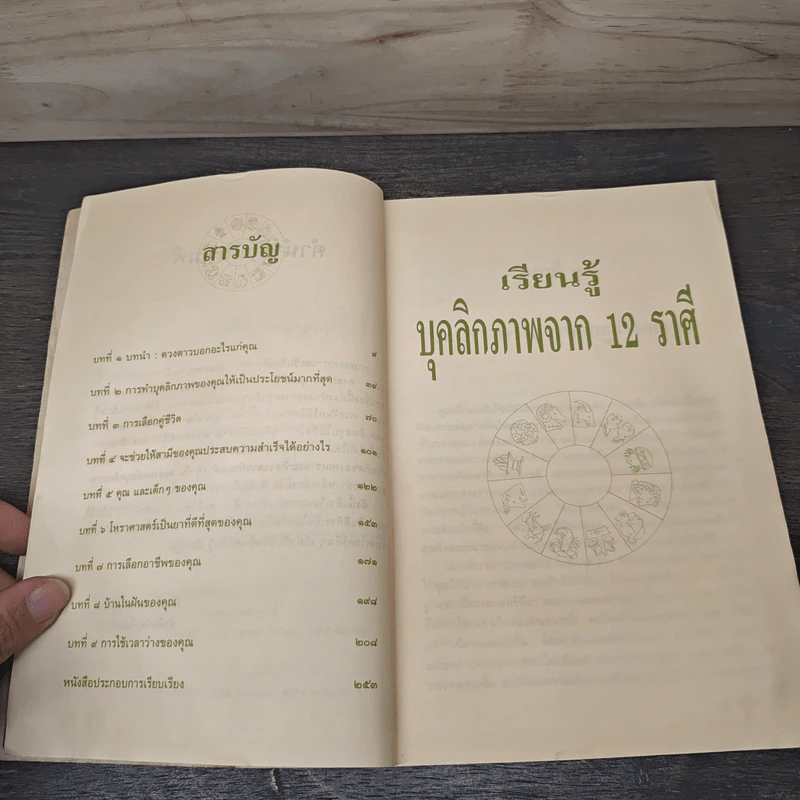 สารบัญ
บทที่ ๑ บทนำ : ดวงดาวบอกอะไรแก่คุณ ๙
บทที่ ๒ การทำบุคลิกภาพของคุณให้เป็นประโยชน์มากที่สุด ๓๙
บทที่ ๓ การเลือกคู่ชีวิต ๗๐
บทที่ ๔ จะช่วยให้สามีของคุณประสบความสำเร็จได้อย่างไร ๑๐๑
บทที่ ๕ คุณ และเด็กๆ ของคุณ ๑๒๒
บทที่ ๖ โหราศาสตร์เป็นยาที่ดีที่สุดของคุณ ๑๕๓
บทที่ ๗ การเลือกอาชีพของคุณ ๑๗๑
บทที่ ๘ บ้านในฝันของคุณ ๑๙๘
บทที่ ๙ การใช้เวลาว่างของคุณ ๒๐๘
หนังสือประกอบการเรียบเรียง ๒๕๓
เรียนรู้
บุคลิกภาพจาก 12 ราศี